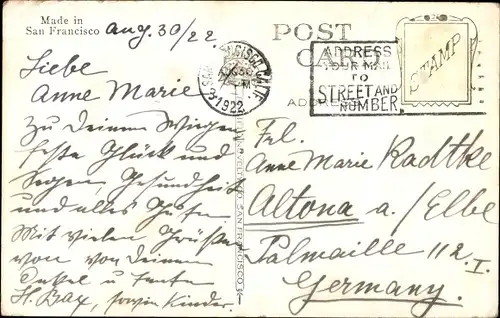 Made in
San Francisco
Aug. 30/22
POST
CARD
ADDRESS
YOUR MAIL
TO
STREET AND
NUMBER
STAMP
SAN FRANCISCO, CALIF.
1922
Liebe
Anne Marie
Zu Deinem Wiegen
feste Glück und
Segen, Gesundheit
und alles Gute.
Mit vielen Grüßen
von von Deinem
Onkel u Tante
H. Bax, sowie Kinder.
Frl.
Anne Marie Radtke
Altona a./Elbe
Palmaille 112 I.
Germany.
SAN FRANCISCO